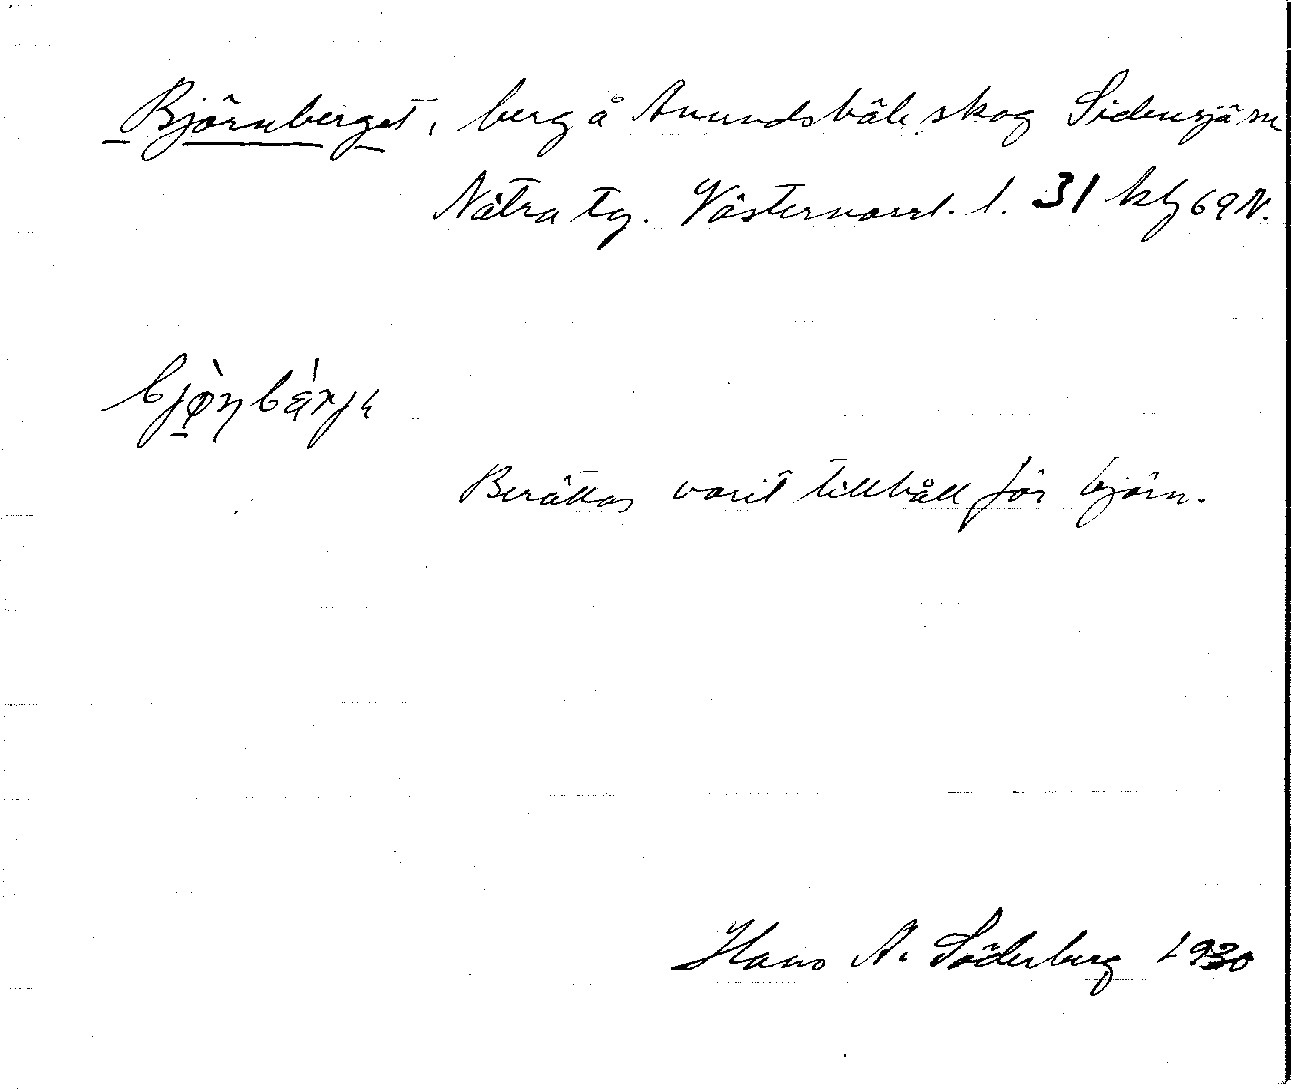 Björnberget, berg å Anundsbäle skog Sidensjö sn
Nätra tg. Västernorrl. l. 31 kbl 69 N.
bjø̀ṇbá̤rjɛ
Berättas varit tillhåll för björn.
Hans A. Söderberg 1930